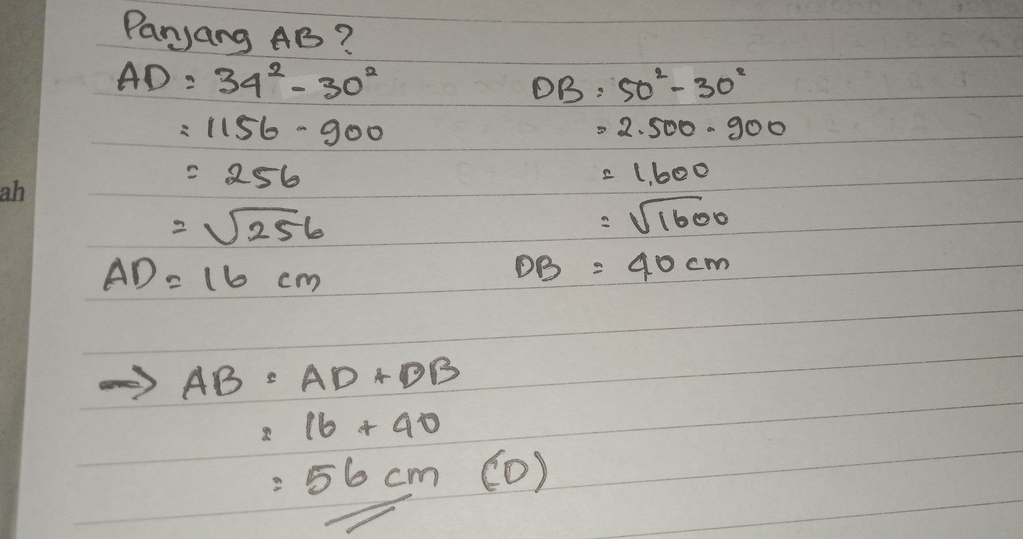 Panjang AB?
AD = 34² - 30²
= 1156 - 900
= 256
= √256
AD = 16 cm
DB = 50² - 30²
= 2.500 - 900
= 1.600
= √1600
DB = 40 cm
→ AB = AD + DB
= 16 + 40
= 56 cm (D)
ah